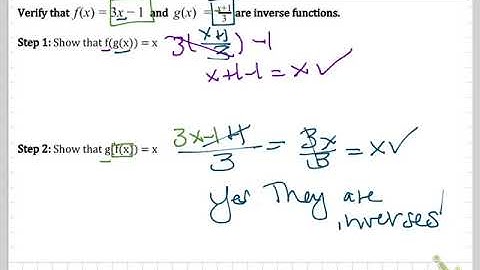 Verify that f(x) = 3x − 1 and g(x) = (x+1)/3 are inverse functions.
Step 1: Show that f(g(x)) = x 3(x+1/3) −1
x+1−1 = x ✓
Step 2: Show that g[f(x)] = x 3x−1+1/3 = 3x/3 = x ✓
Yes They are
inverses!